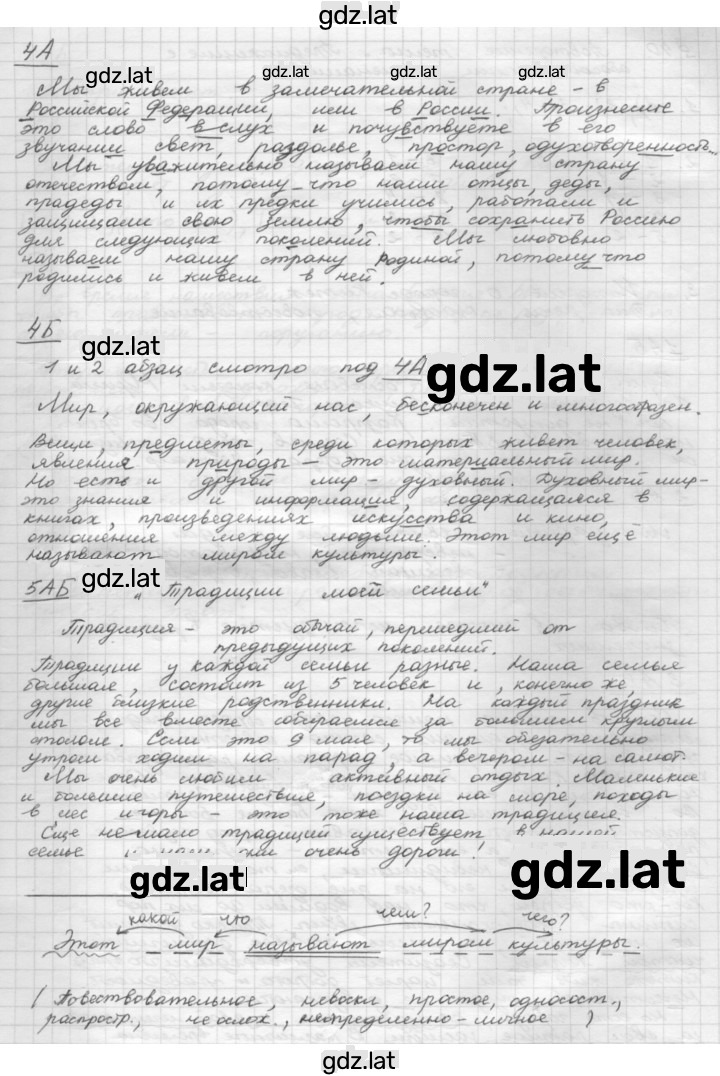 gdz.lat
4А
gdz.lat gdz.lat gdz.lat
Мы живем в замечательной стране - в
Российской Федерации, или в России. Произнесите
это слово вслух и почувствуете в его
звучании свет, раздолье, простор, одухотворенность...
Мы уважительно называем нашу страну
отечеством, потому-что наши отцы, деды,
прадеды и их предки учились, работали и
защищали свою землю, чтобы сохранить Россию
для следующих поколений. Мы любовно
называем нашу страну Родиной, потому что
родились и живем в ней.
4Б
gdz.lat
1 и 2 абзац смотро под 4А
gdz.lat
Мир, окружающий нас, бесконечен и многообразен.
Вещи, предметы, среди которых живет человек,
явления природы - это материальный мир.
Но есть и другой мир - духовный. Духовный мир -
это знания и информация, содержащаяся в
книгах, произведениях искусства и кино,
отношения между людьми. Этот мир ещё
называют миром культуры.
5АБ
gdz.lat
"Традиции моей семьи"
Традиция - это обычай, перешедший от
предыдущих поколений.
Традиции у каждой семьи разные. Наша семья
большая, состоит из 5 человек и, конечно же,
другие близкие родственники. На каждый праздник
мы все вместе собираемся за большим круглым
столом. Если это 9 мая, то мы обязательно
утром ходим на парад, а вечером - на салют.
Мы очень любим активный отдых. Маленькие
и большие путешествия, поездки на море, походы
в лес и горы - это тоже наша традиция.
Еще немало традиций существует в нашей
семье и очень дороги!
gdz.lat gdz.lat
какой что чем? чего?
Этот мир называют миром культуры.
(Повествовательное, невоскл, простое, односост.,
распростр., не ослож., неопределенно-личное)
gdz.lat